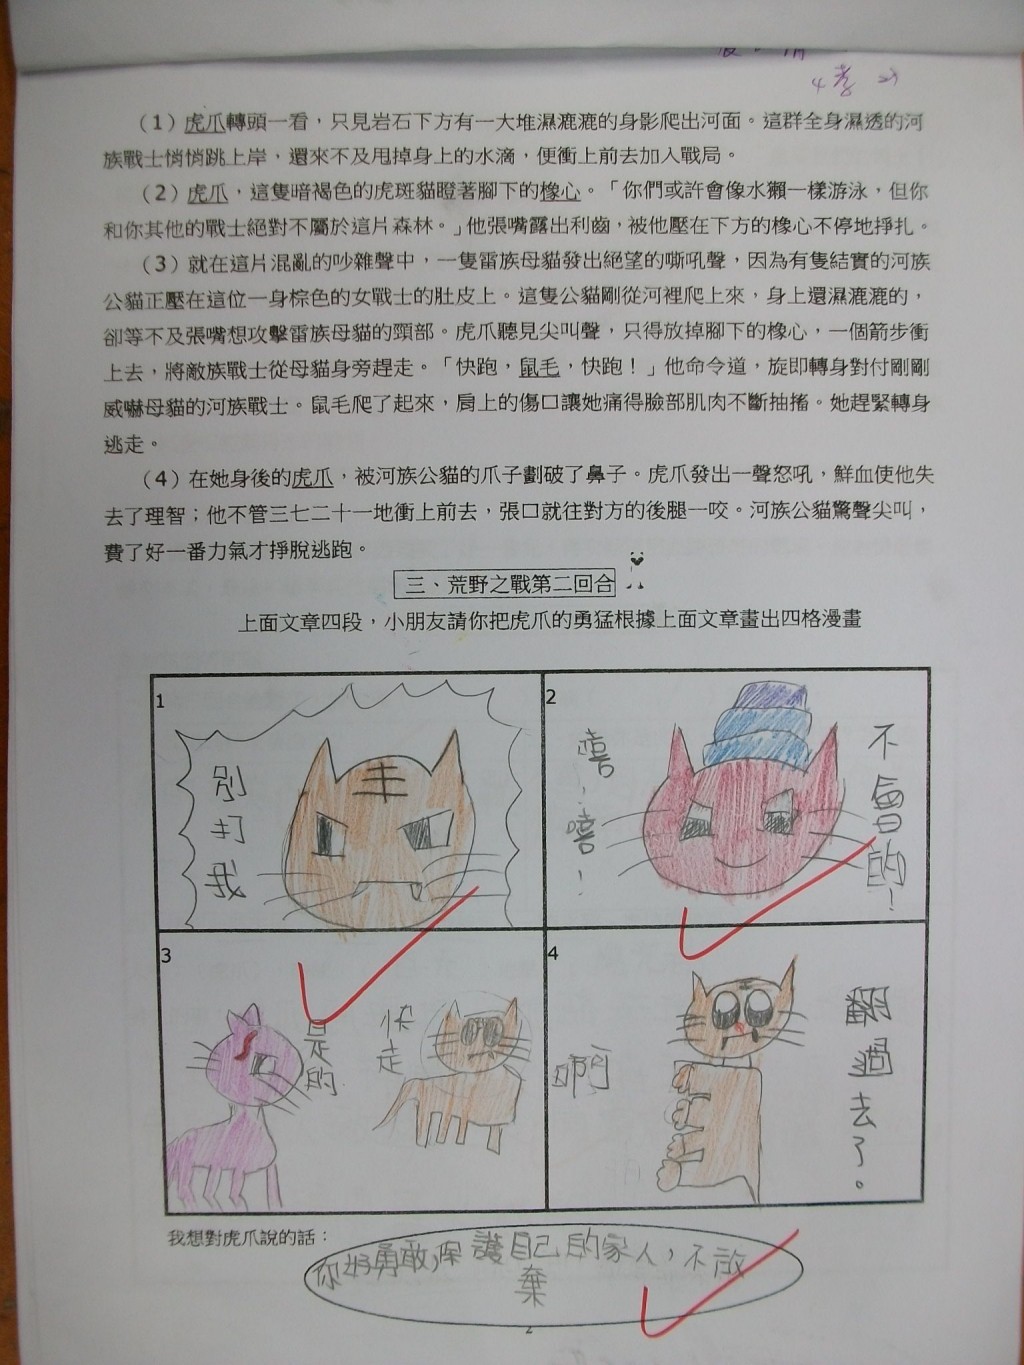 4孝
（1）虎爪轉頭一看，只見岩石下方有一大堆濕漉漉的身影爬出河面。這群全身濕透的河
族戰士悄悄跳上岸，還來不及甩掉身上的水滴，便衝上前去加入戰局。
（2）虎爪，這隻暗褐色的虎斑貓瞪著腳下的橡心。「你們或許會像水獺一樣游泳，但你
和你其他的戰士絕對不屬於這片森林。」他張嘴露出利齒，被他壓在下方的橡心不停地掙扎。
（3）就在這片混亂的吵雜聲中，一隻雷族母貓發出絕望的嘶吼聲，因為有隻結實的河族
公貓正壓在這位一身棕色的女戰士的肚皮上。這隻公貓剛從河裡爬上來，身上還濕漉漉的，
卻等不及張嘴想攻擊雷族母貓的頸部。虎爪聽見尖叫聲，只得放掉腳下的橡心，一個箭步衝
上去，將敵族戰士從母貓身旁趕走。「快跑，鼠毛，快跑！」他命令道，旋即轉身對付剛剛
威嚇母貓的河族戰士。鼠毛爬了起來，肩上的傷口讓她痛得臉部肌肉不斷抽搐。她趕緊轉身
逃走。
（4）在她身後的虎爪，被河族公貓的爪子劃破了鼻子。虎爪發出一聲怒吼，鮮血使他失
去了理智；他不管三七二十一地衝上前去，張口就往對方的後腿一咬。河族公貓驚聲尖叫，
費了好一番力氣才掙脫逃跑。
三、荒野之戰第二回合
上面文章四段，小朋友請你把虎爪的勇猛根據上面文章畫出四格漫畫
1
別打我
2
不會的！
嘻！嘻！
3
快走
是的
4
翻過去了。
啊
我想對虎爪說的話：
你好勇敢，保護自己的家人，不放
棄
2